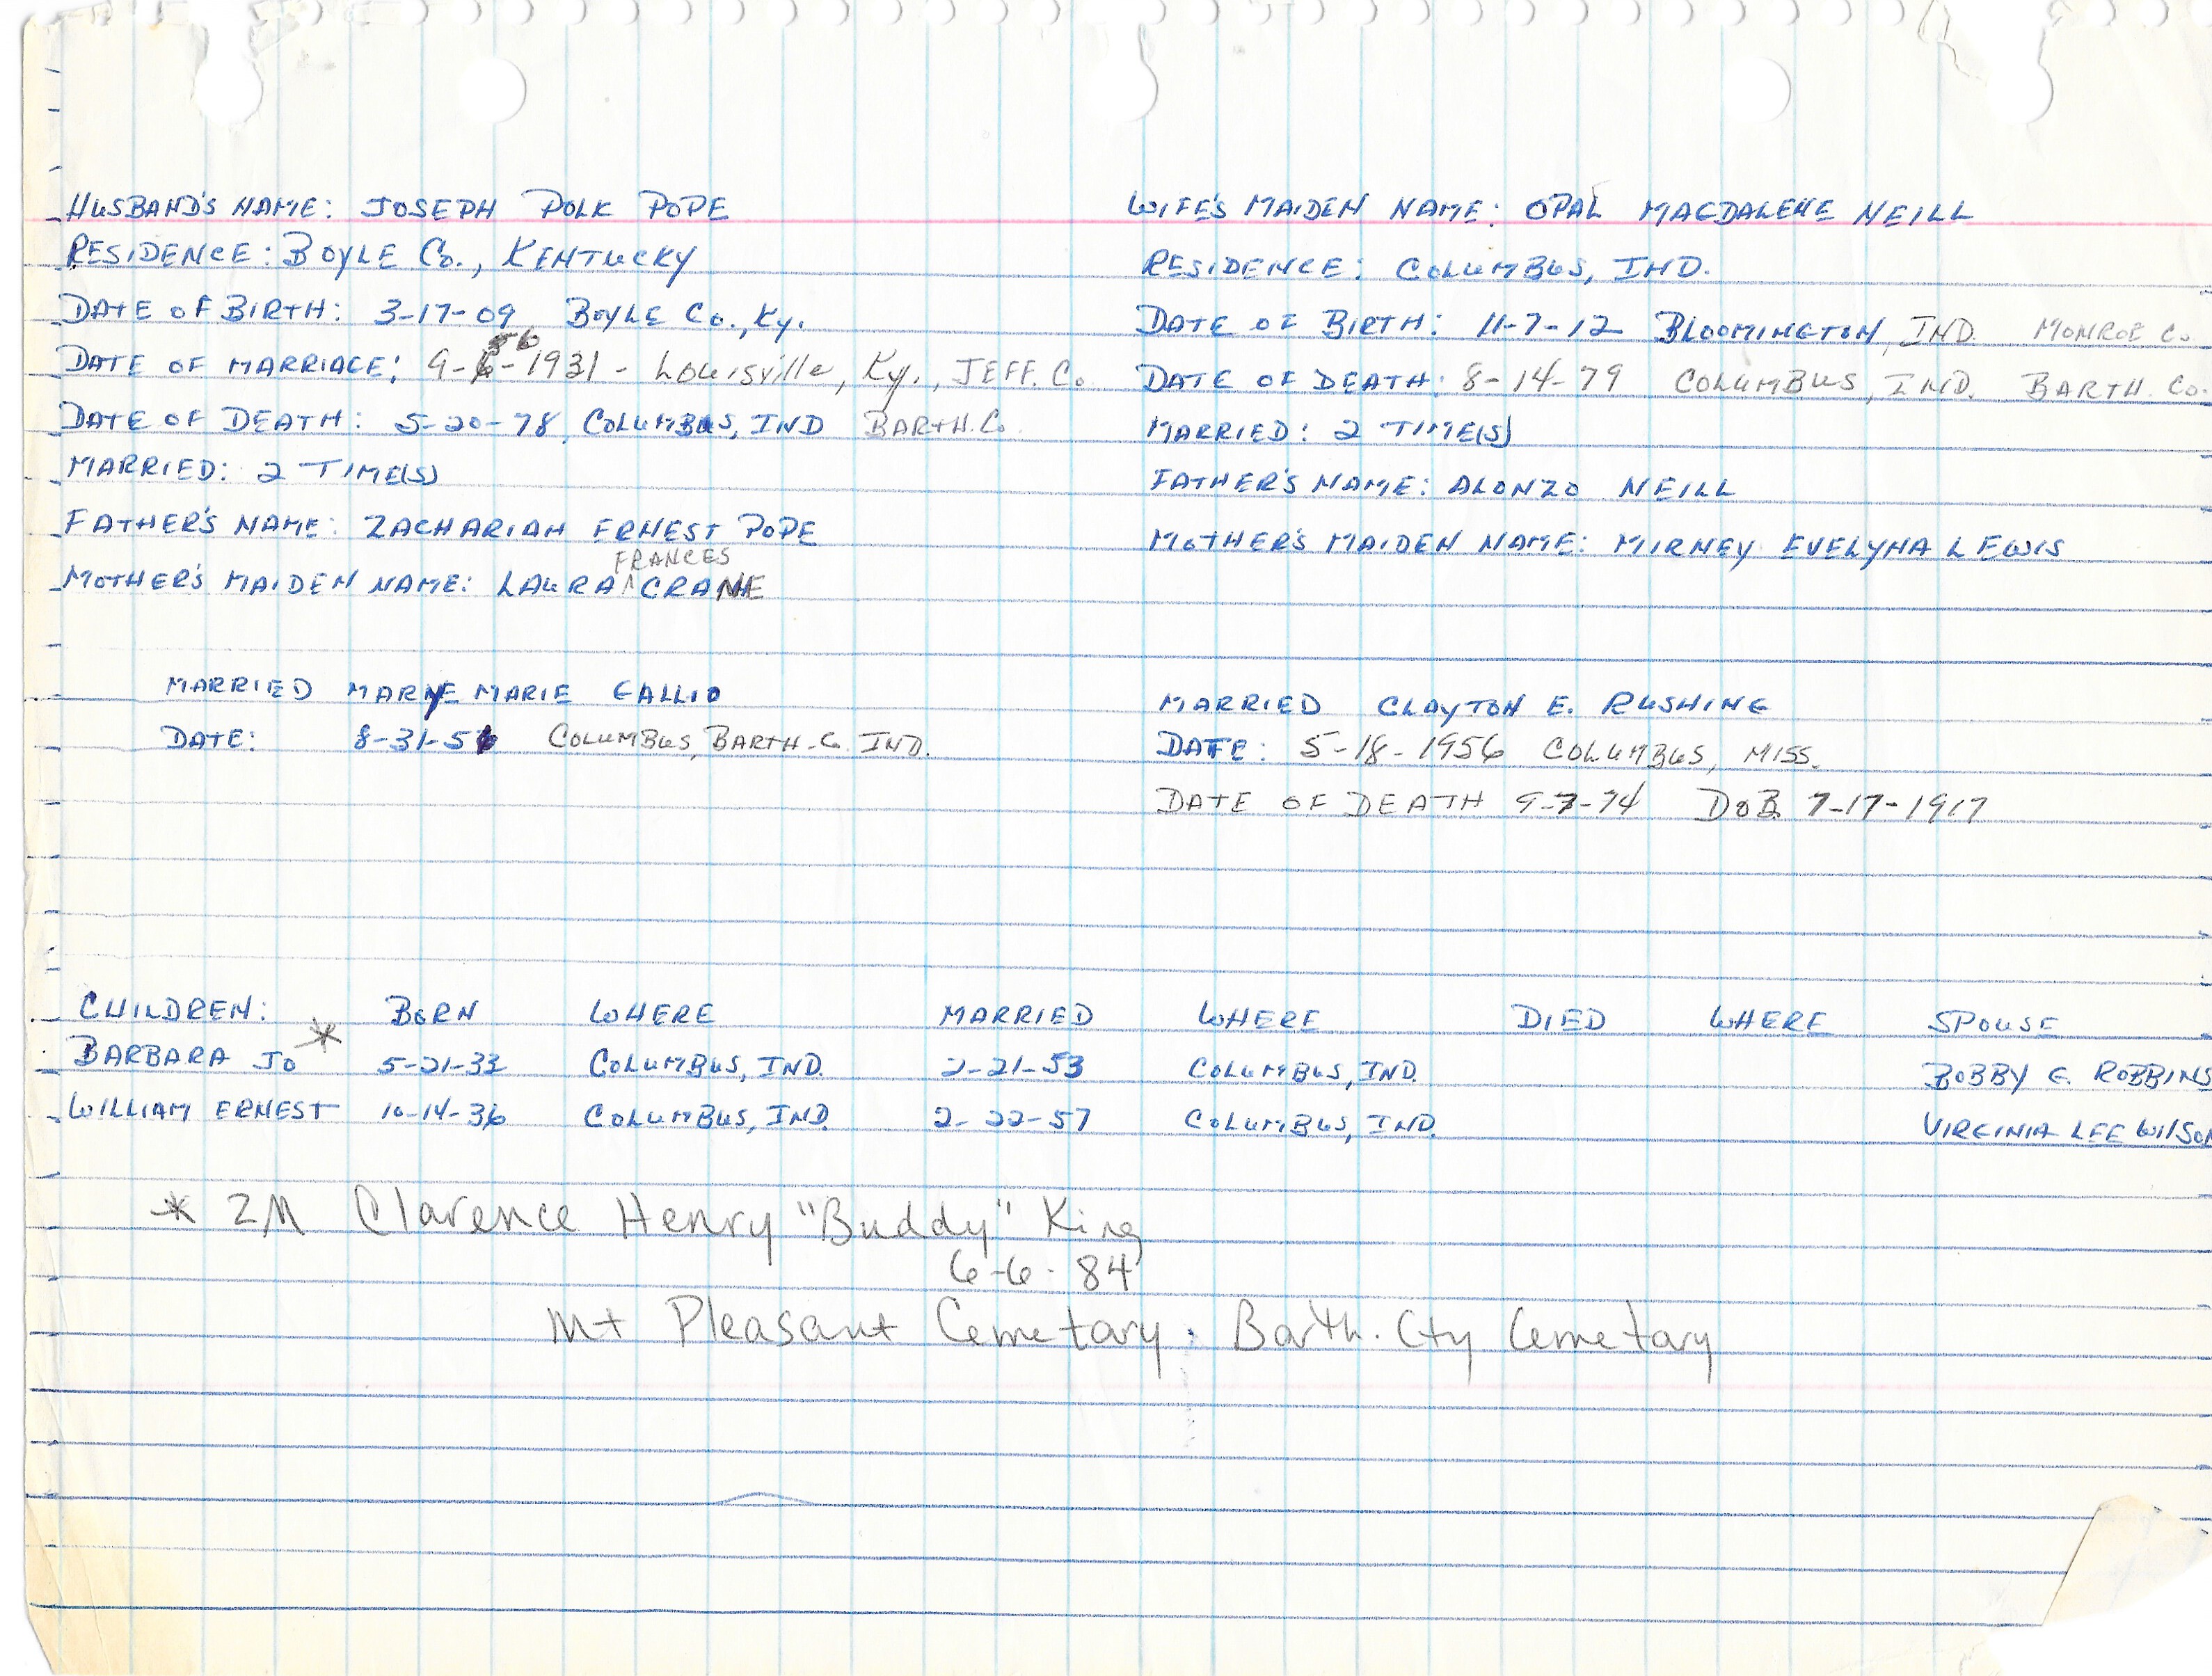 HUSBAND'S NAME: JOSEPH POLK POPE
RESIDENCE: BOYLE CO., KENTUCKY
DATE OF BIRTH: 3-17-09 BOYLE CO., KY.
DATE OF MARRIAGE: 9- -1931 - Louisville, Ky., JEFF. Co.
DATE OF DEATH: 5-20-78 COLUMBUS, IND BARTH. Co.
MARRIED: 2 TIME(S)
FATHER'S NAME: ZACHARIAH ERNEST POPE
FRANCES
MOTHER'S MAIDEN NAME: LAURA ^ CRANE
WIFE'S MAIDEN NAME: OPAL MAGDALENE NEILL
RESIDENCE: COLUMBUS, IND.
DATE OF BIRTH: 11-7-12 BLOOMINGTON, IND. MONROE Co.
DATE OF DEATH: 8-14-79 COLUMBUS, IND. BARTH. Co.
MARRIED: 2 TIME(S)
FATHER'S NAME: ALONZO NEILL
MOTHER'S MAIDEN NAME: MIRNEY EVELYNA LEWIS
MARRIED MARYE MARIE GALLIO
DATE: COLUMBUS, BARTH. Co. IND.
MARRIED CLAYTON E. RUSHING
DATE: 5-18-1956 COLUMBUS, MISS.
DATE OF DEATH 9-7-74 DOB 7-17-1917
CHILDREN: BORN WHERE MARRIED WHERE DIED WHERE SPOUSE
BARBARA JO * COLUMBUS, IND. 2-21-53 COLUMBUS, IND. BOBBY G. ROBBINS
WILLIAM ERNEST 10-14-36 COLUMBUS, IND. 2-22-57 COLUMBUS, IND. VIRGINIA LEE WILSON
* 2M Clarence Henry "Buddy" King
6-6-84
Mt Pleasant Cemetary. Barth. Cty Cemetary